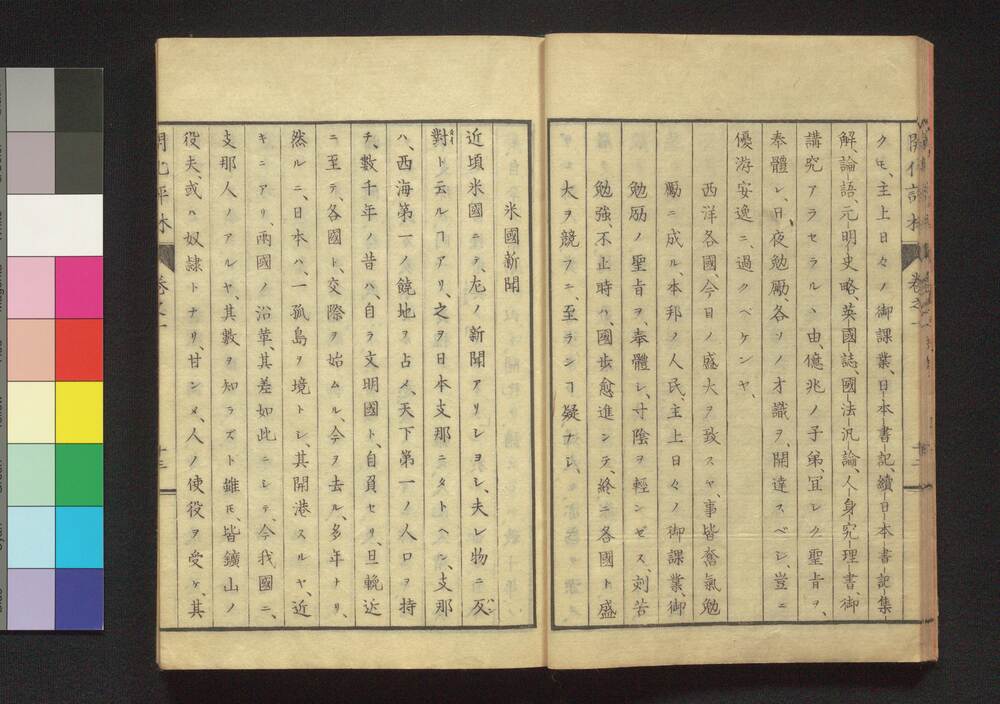 クモ、主上日々ノ御課業、日本書記續日本書記集
解、論語、元明史略、英國誌、國法汎論、人身究理書、御
講究アラセラルヽ由、億兆ノ子弟、冝レク聖旨ヲ、
奉體シ、日夜勉勵、各ソノ才識ヲ、開達スベシ、豈ニ
優游安逸ニ、過クベケンヤ、
西洋各國、今日ノ盛大ヲ致スヤ、事皆奮氣勉
勵ニ成ル、本邦ノ人民、主上日々ノ御課業、御
勉励ノ聖旨ヲ、奉體シ、寸陰ヲ輕ンゼス、刻苦
勉強、不止時ハ、國歩愈進ンテ、終ニ各國ト盛
大ヲ競フニ、至ランヿ疑ナシ、
米國新聞
近頃米國ニテ、左ノ新聞アリシヨシ、夫レ物ニ反
對ト云ルヿアリ、之ヲ日本支那ニタトヘン、支那
ハ、西海第一ノ饒地ヲ占メ、天下第一ノ人口ヲ持
チ、數千年ノ昔ハ、自ラ文明國ト、自負セリ、且輓近
ニ至テ、各國ト、交際ヲ始ムル、今ヲ去ル、多年ナリ、
然ルニ、日本ハ、一孤島ヲ境トシ、其開港スルヤ、近
キニアリ、兩國ノ沿革、其差如此ニシテ、今我國ニ、
支那人ノアルヤ、其數ヲ知ラズト雖モ、皆鑛山ノ
役夫、或ハ奴隷トナリ、甘ンメ、人ノ使役ヲ受ケ、其
卷之一
十三